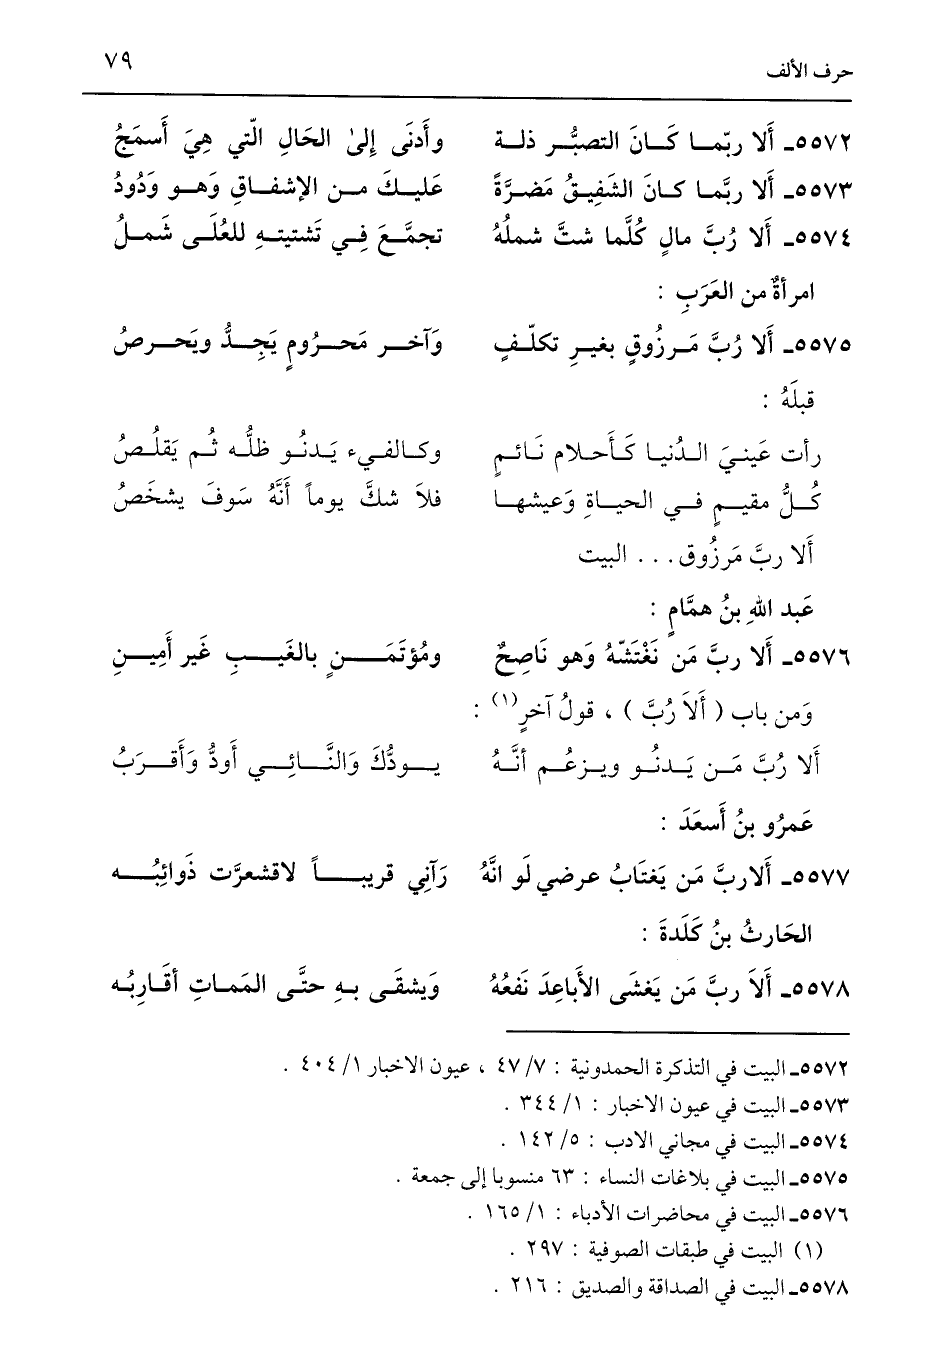 حرف الألف ٧٩
٥٥٧٢ـ أَلا ربّما كَانَ التصبُّر ذلة وأَدنَى إِلىٰ الحَالِ الّتي هِيَ أَسمَجُ
٥٥٧٣ـ أَلا ربَّما كانَ الشَفِيقُ مَضرَّةً عَليكَ من الإشفاقِ وَهو وَدُودُ
٥٥٧٤ـ أَلا رُبَّ مالٍ كُلَّما شتَّ شملُهُ تجمَّعَ فِي تَشتيتهِ للعُلَى شَملُ
امرأةٌ من العَرَبِ :
٥٥٧٥ـ أَلا رُبَّ مَرزُوقٍ بغيرِ تكلّفٍ وَآخر مَحرُومٍ يَجِدُّ ويَحرصُ
قبلَهُ :
رأت عَينيَ الدُنيا كَأَحلام نَائمٍ وكالفيء يَدنُو ظلُّه ثُم يَقلُصُ
كُلُّ مقيمٍ في الحياةِ وَعيشها فلاَ شكَّ يوماً أَنَّهُ سَوفَ يشخَصُ
أَلا ربَّ مَرزُوق . . . البيت
عَبد اللهِ بنُ همَّامٍ :
٥٥٧٦ـ أَلا ربَّ مَن نَغْتَشّهُ وَهو نَاصِحٌ ومُؤتَمَنٍ بالغَيبِ غَير أَمِينِ
وَمن باب ( أَلاَ رُبَّ ) ، قولُ آخرٍ(١) :
أَلا رُبَّ مَن يَدنُو ويزعُم أنَّهُ يودُّكَ وَالنَّائي أَودُّ وَأَقرَبُ
عَمرُو بنُ أَسعَدَ :
٥٥٧٧ـ أَلاربَّ مَن يَغتَابُ عرضي لَو انَّهُ رَآنِي قريباً لاقشعرَّت ذَوائِبُه
الحَارثُ بنُ كَلَدةَ :
٥٥٧٨ـ أَلاَ ربَّ مَن يَغشَى الأَباعِدَ نَفعُهُ وَيشقَى بهِ حتَّى المَماتِ أَقَاربُه
٥٥٧٢ـ البيت في التذكرة الحمدونية : ٧/ ٤٧ ، عيون الاخبار ١/ ٤٠٤ .
٥٥٧٣ـ البيت في عيون الاخبار : ١/ ٣٤٤ .
٥٥٧٤ـ البيت في مجاني الادب : ٥/ ١٤٢ .
٥٥٧٥ـ البيت في بلاغات النساء : ٦٣ منسوبا إلى جمعة .
٥٥٧٦ـ البيت في محاضرات الأدباء : ١/ ١٦٥ .
(١) البيت في طبقات الصوفية : ٢٩٧ .
٥٥٧٨ـ البيت في الصداقة والصديق : ٢١٦ .